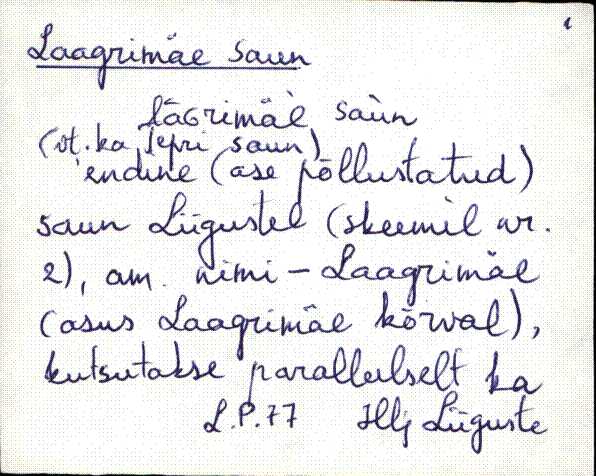 Laagrimäe saun
lāGrimäè saùn
(vt. ka Tepri saun)
'endine (ase põllustatud)
saun Liigustel (skeemil nr.
2), am. nimi – Laagrimäe
(asus Laagrimäe kõrval),
kutsutakse paralleelselt ka
L.P.77 Illj Liiguste